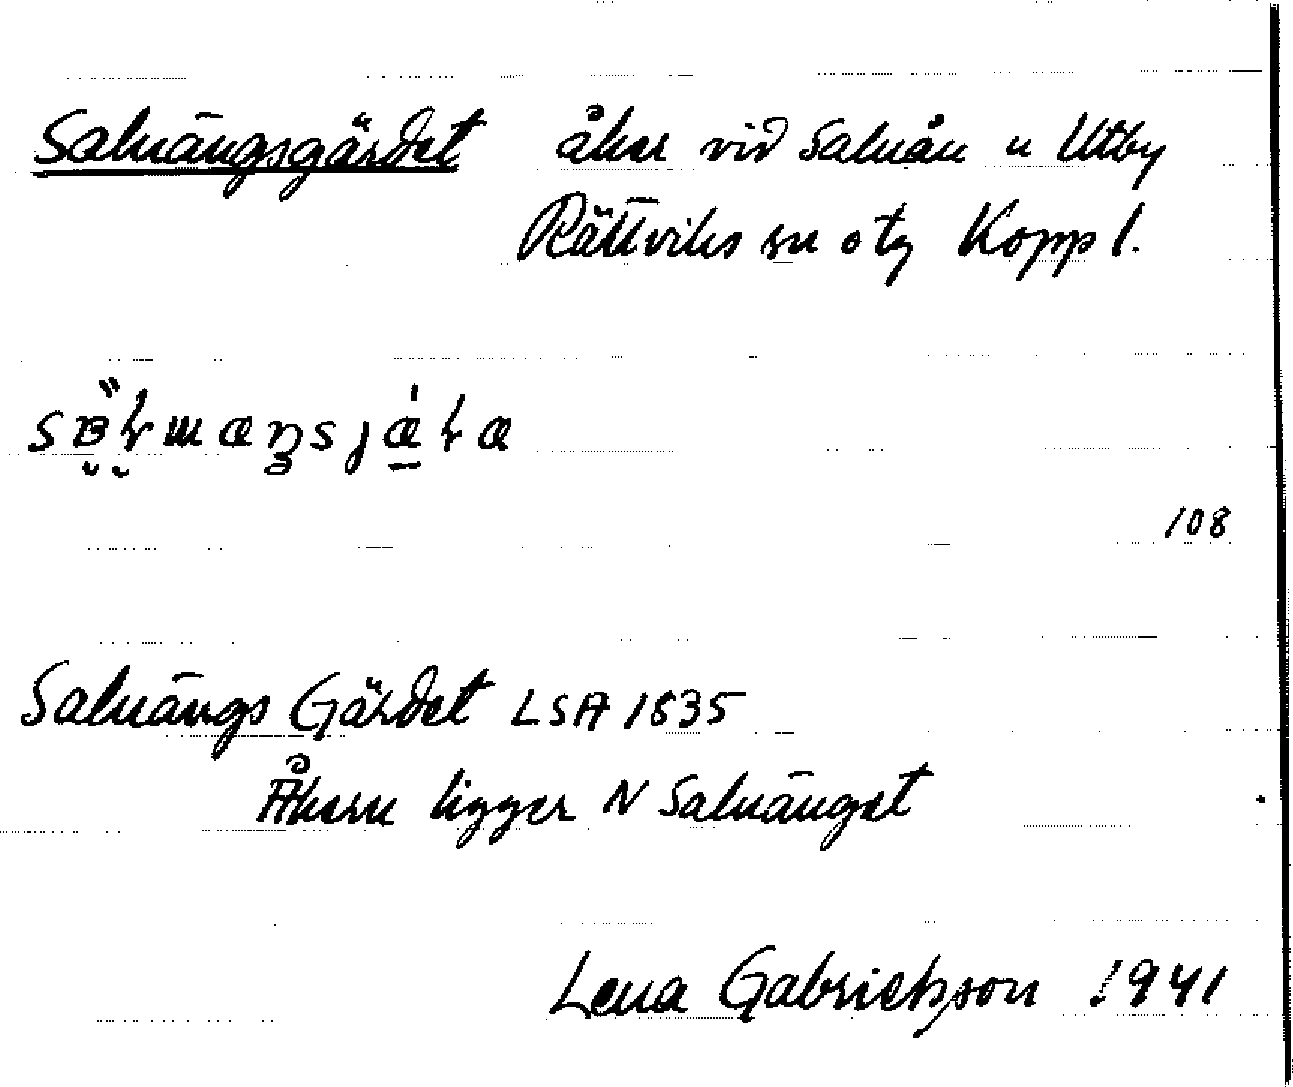 Saluängsgärdet åker vid Saluån u Utby
Rättviks sn o tg Koppl.
108
Saluängs Gärdet LSA 1835
Åkern ligger N Saluänget
Lena Gabrielsson 1941